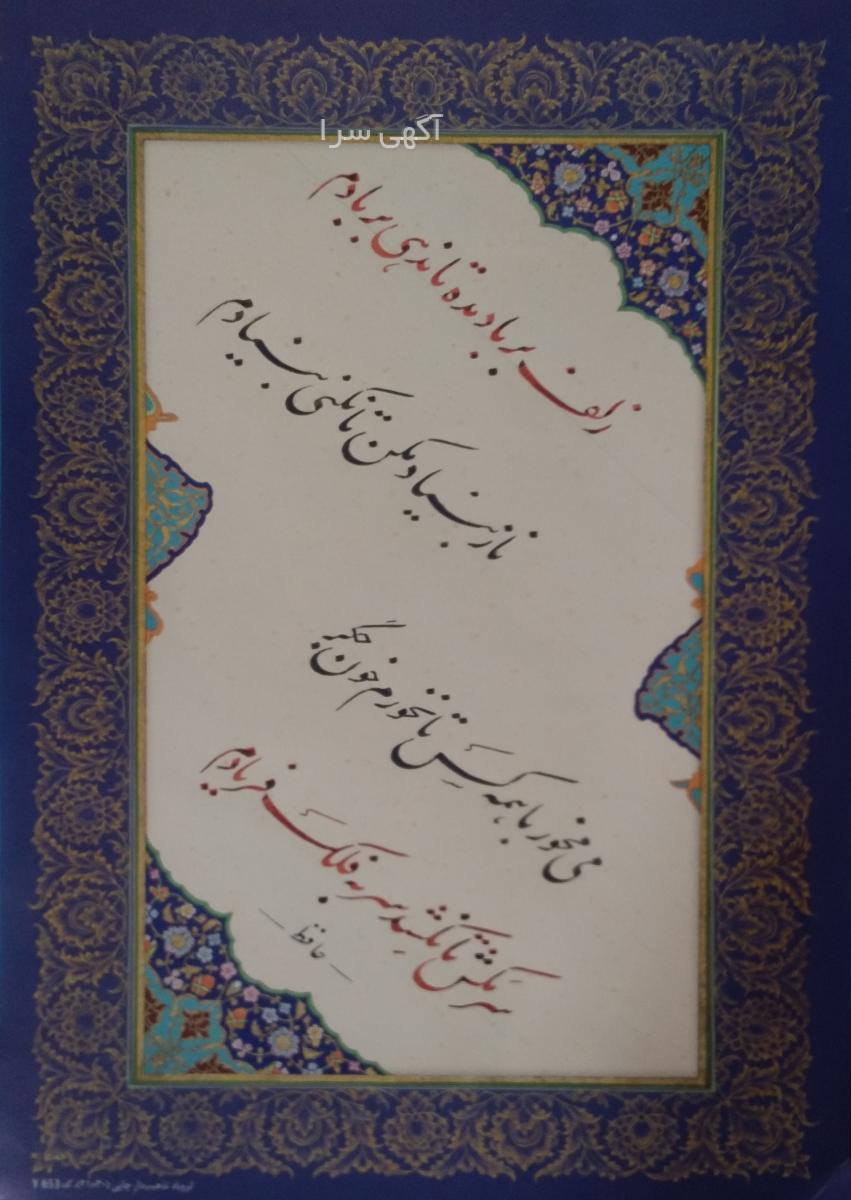 آگهی سرا
زلف بر باد مده تا ندهی بر بادم
ناز بنیاد مکن تا نکنی بنیادم
می مخور با همه کس تا نخورم خون جگر
سر مکش تا نکشد سر به فلک فریادم
حافظ